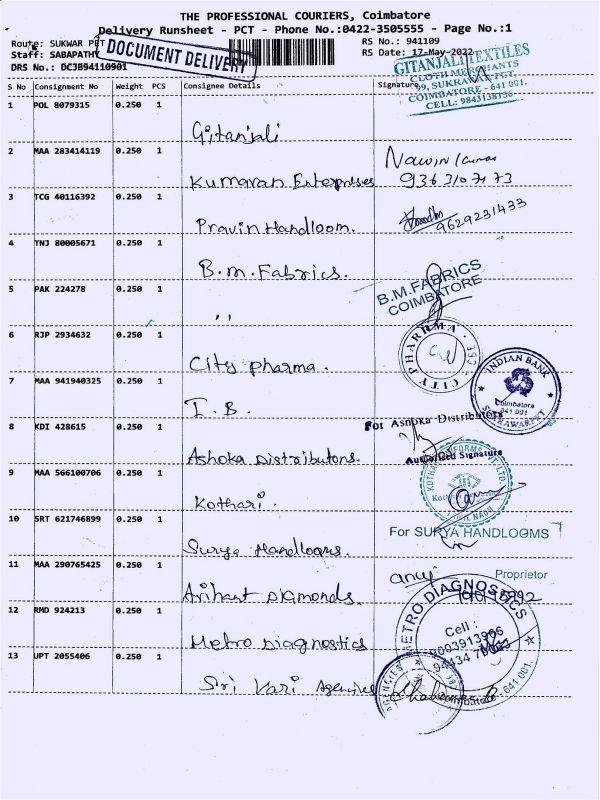 THE PROFESSIONAL COURIERS, Coimbatore
Delivery Runsheet - PCT - Phone No.:0422-3505555 - Page No.:1
Route: SUKWAR PET
RS No.: 941109
Staff: SABAPATHY
RS Date: 17-May-2022
DRS No.: DCJB94110901
DOCUMENT DELIVERY
GITANJALI TEXTILES
CLOTH MERCHANTS
99, SUKRAWAR PET,
COIMBATORE - 641 001.
CELL: 9843138156
S No Consignment No Weight PCS Consignee Details Signature
1 POL 8079315 0.250 1
Gitanjali
2 MAA 283414119 0.250 1
Kumaran Enterprises
3 TCG 40116392 0.250 1
Pravin Handloom.
9629231433
4 TNJ 80005671 0.250 1
B.m. Fabrics.
5 PAK 224278 0.250 1
B.M.FABRICS
COIMBATORE
,,
6 RJP 2934632 0.250 1
CITY PHARMA
City pharma.
7 MAA 941940325 0.250 1
INDIAN BANK
Coimbatore
641 001
SUKRAWARPET
I.B.
8 KDI 428615 0.250 1
For Ashoka Distributors
Ashoka Distributors.
Authorised Signature
9 MAA 566100706 0.250 1
Kothari.
10 SRT 621746899 0.250 1
For SURYA HANDLOOMS
Surya Handlooms.
Proprietor
11 MAA 290765425 0.250 1
Arihant Diamonds.
12 RMD 924213 0.250 1
METRO DIAGNOSTICS
Cell:
Metro Diagnostics
13 UPT 2055406 0.250 1
Sri Vari Agencies
AGENCIES
Coimbatore - 641 001.